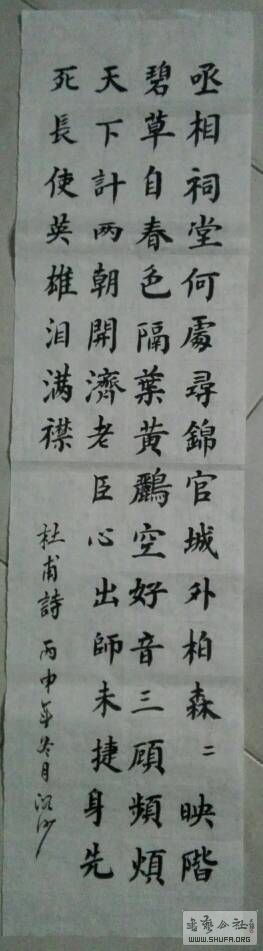 丞相祠堂何處尋錦官城外柏森〻映階
碧草自春色隔葉黄鸝空好音三顧頻煩
天下計两朝開濟老臣心出師未捷身先
死長使英雄泪满襟
杜甫詩 丙申年冬月
书艺公社
WWW.SHUFA.ORG